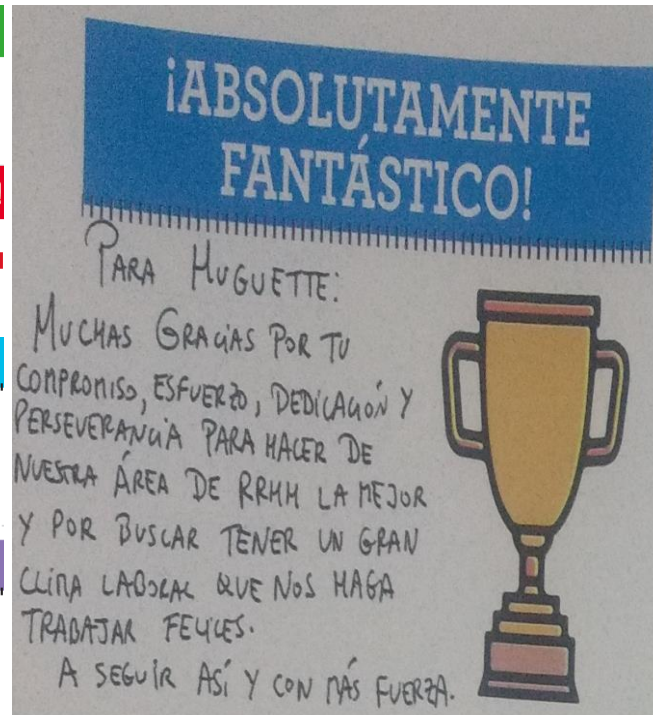 ¡ABSOLUTAMENTE
FANTÁSTICO!
PARA HUGUETTE:
MUCHAS GRACIAS POR TU
COMPROMISO, ESFUERZO, DEDICACIÓN Y
PERSEVERANCIA PARA HACER DE
NUESTRA ÁREA DE RRHH LA MEJOR
Y POR BUSCAR TENER UN GRAN
CLIMA LABORAL QUE NOS HAGA
TRABAJAR FELICES.
A SEGUIR ASÍ Y CON MÁS FUERZA.